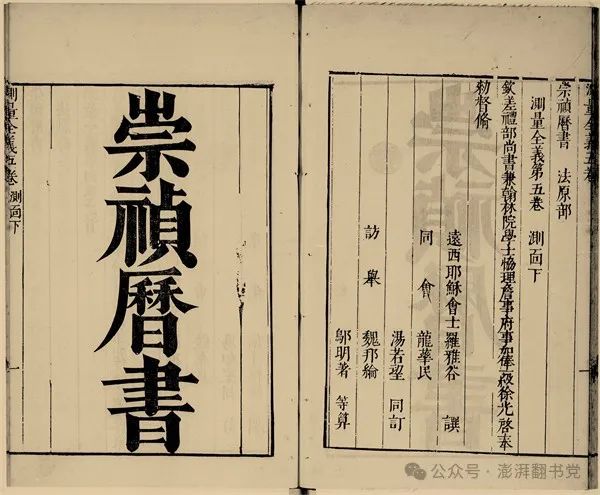 測量全義五卷
崇禎曆書 法原部
測量全義第五卷 測面下
欽差禮部尚書兼翰林院學士協理詹事府事加俸一級徐光啓奉
勅督脩
遠西耶穌會士羅雅谷 譔
同會 龍華民
湯若望 同訂
訪舉 魏邦綸
鄔明著 等算
崇禎曆書
測量全義五卷 測面下
一
公众号·澎湃翻书党